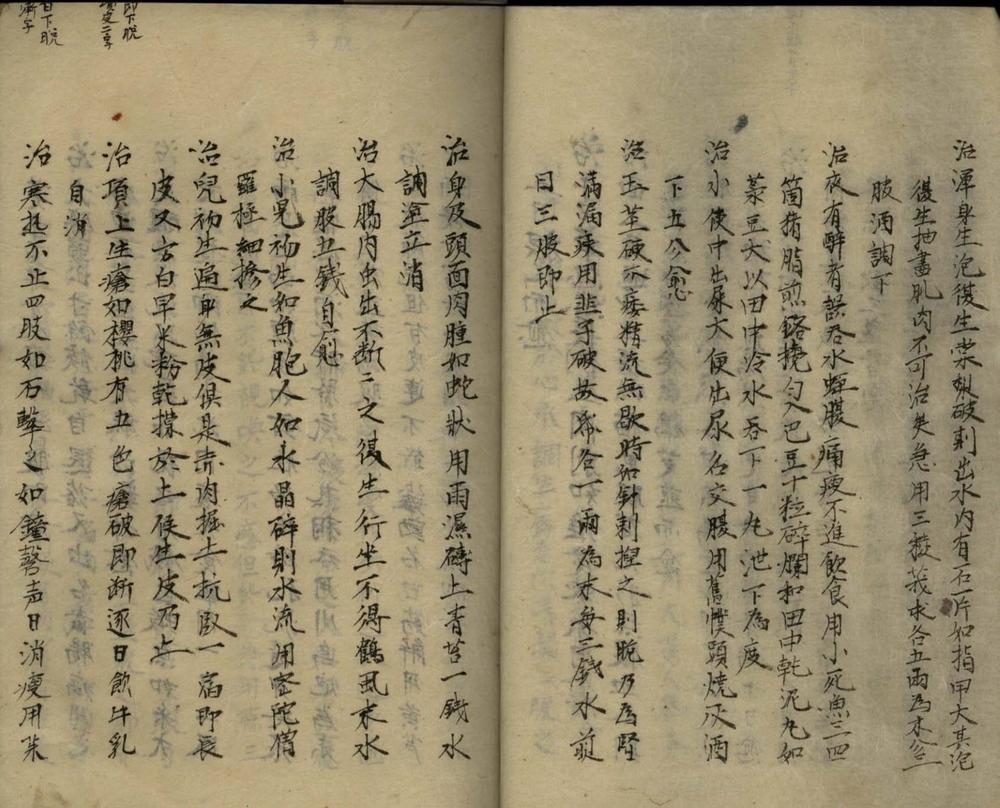 治渾身生泡復生棠梨破刺出水內有石一片如指甲大其泡
復生抽盡肌肉不可治矣急用三稜莪朮各五兩為末分三
服酒調下
治夜有醉者誤吞水蛭腹痛疲不進飲食用小死魚三四
箇猪脂煎鎔攪勻入巴豆十粒碎爛和田中乾泥丸如
菉豆大以田中冷水吞下一丸泄下為度
治小使中出屎大便出尿名交腸用舊幞頭燒灰酒
下五分愈
治玉莖硬不痿精流無歇時如針刺捏之則脆乃為腎
滿漏疾用韭子破故紙各一兩為末每三錢水煎
日三服即止
治身及頭面肉腫如蛇狀用雨濕磚上青苔一錢水
調塗立消
治大腸內虫出不斷二之復生行坐不得鶴虱末水
調服五錢自愈
治小兒初生如魚胞人如水晶碎則水流用密陀僧
羅極細摻之
治兒初生遍身無皮俱是赤肉掘土坑臥一宿即長
皮又方白早米粉乾撲於上候生皮乃止
治頂上生瘡如櫻桃有五色瘡破即斷逐日飲牛乳
自消
治寒熱不止四肢如石擊之如鐘磬声日消瘦用茱